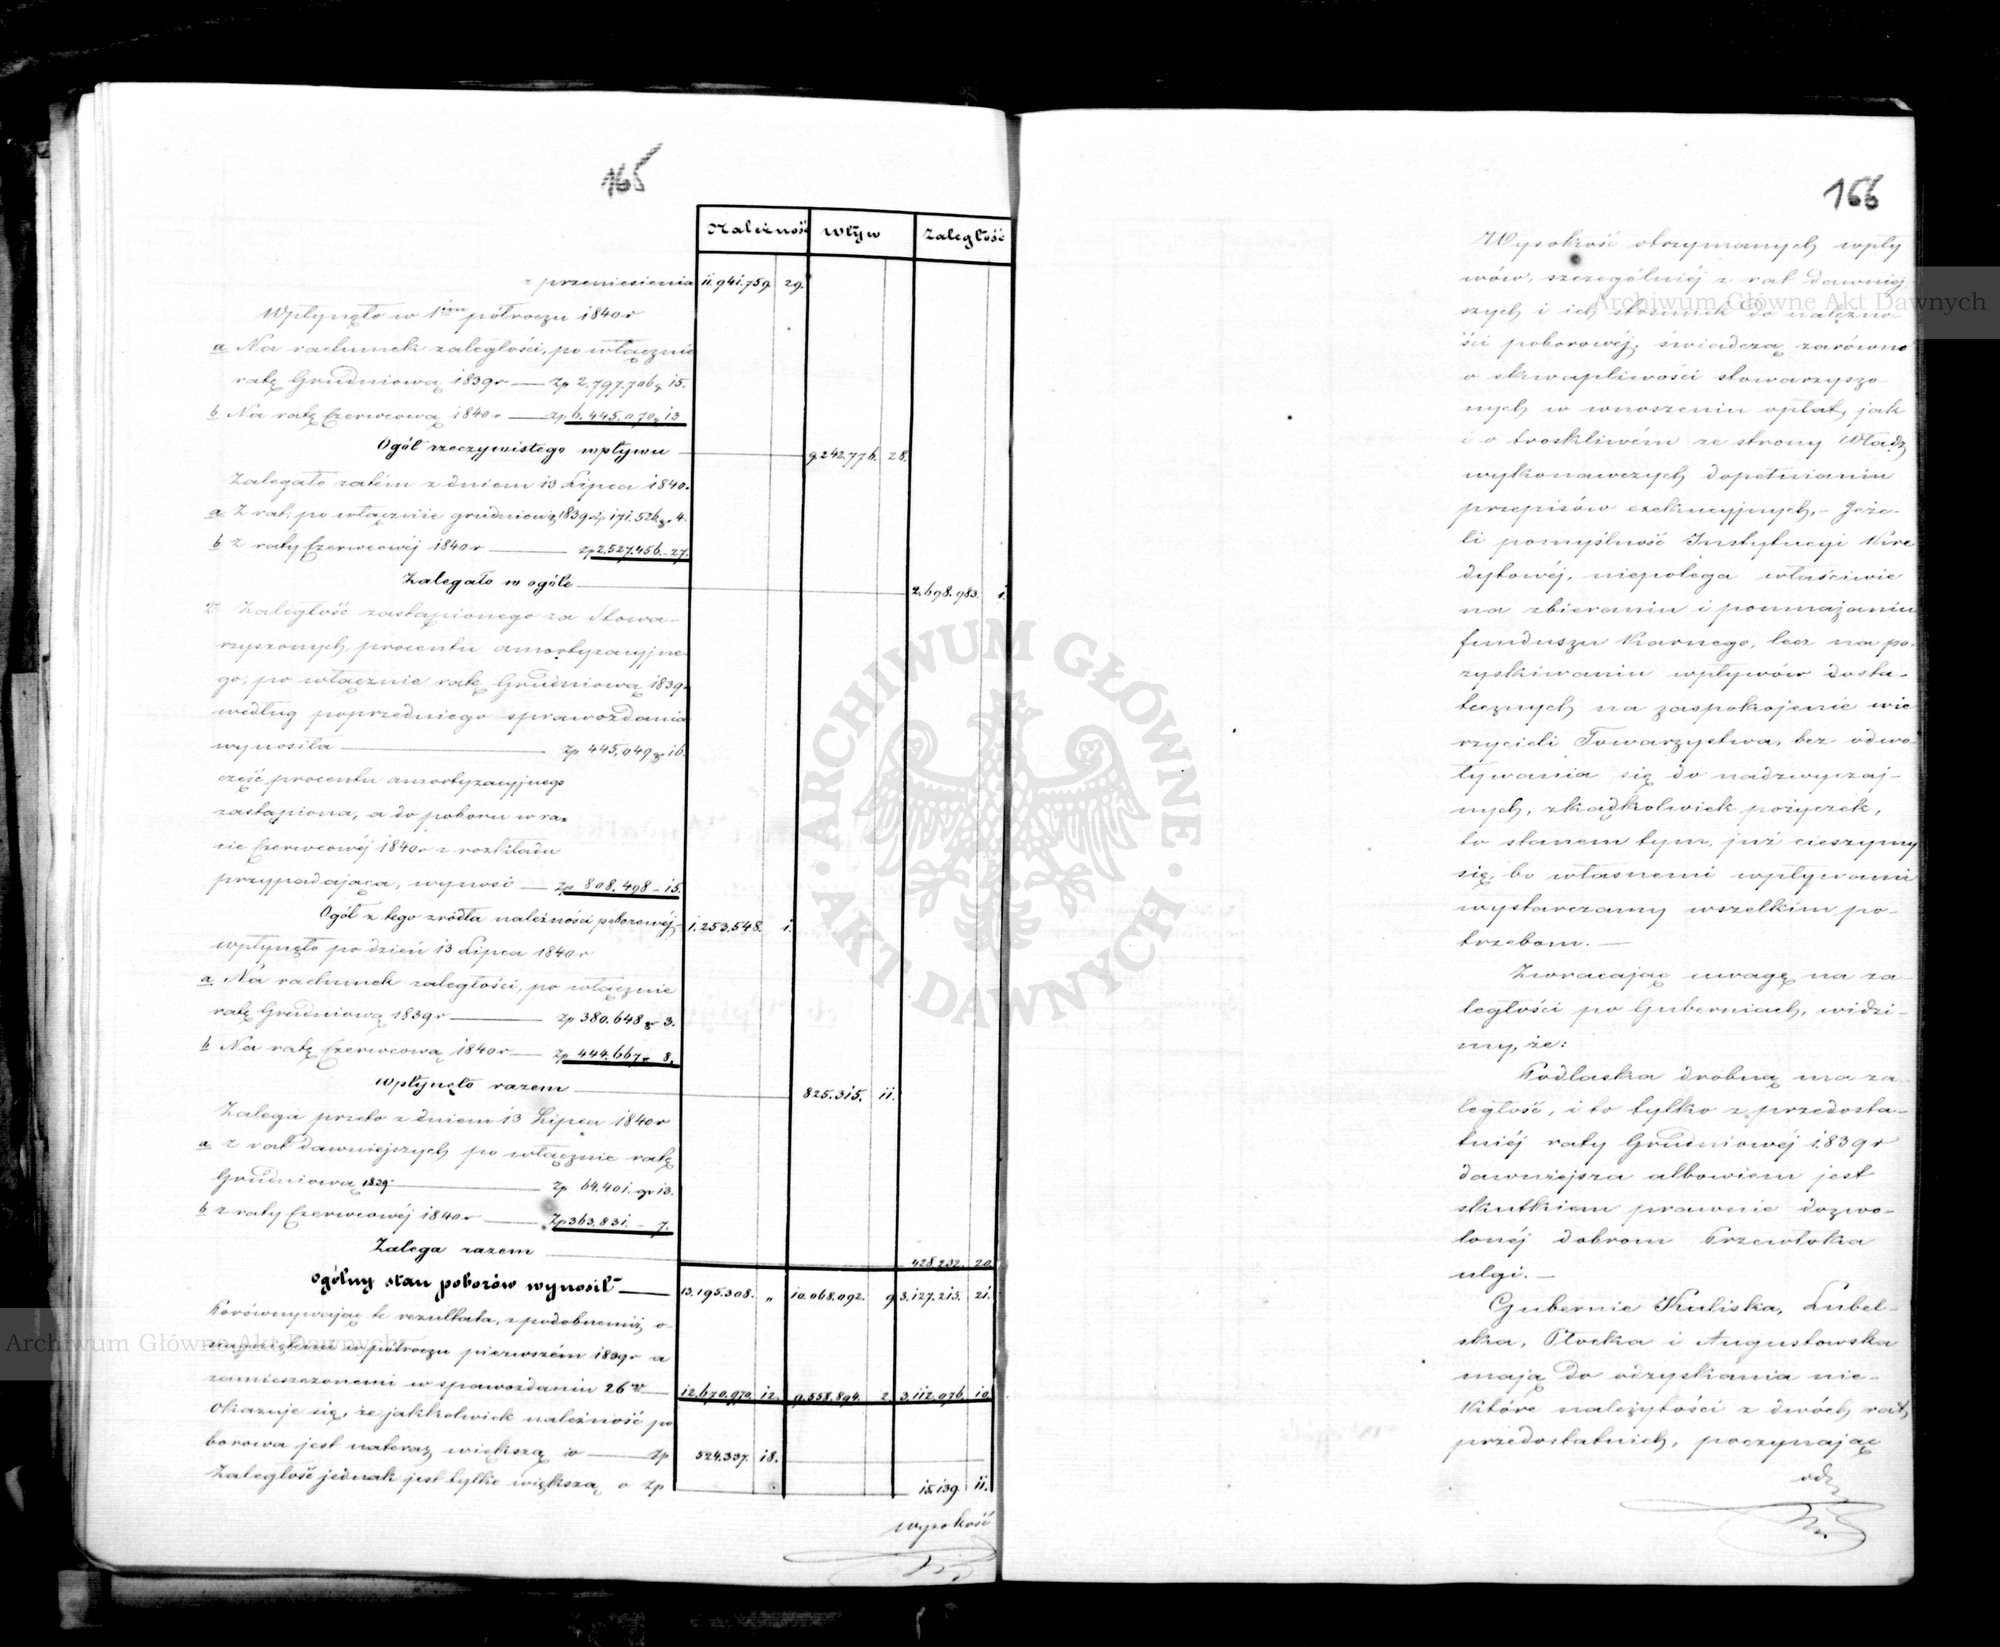 165
Należność Wpływ Zaległość
z przeniesienia 11.941.759. 29.
Wpłynęło w 1ém półroczu 1840 r
a Na rachunek zaległości, po włącznie
ratę Grudniową 1839 r — zp 2.797.706 gr 15.
b Na ratę Czerwcową 1840 r — zp 6.445.070 gr 13
Ogół rzeczywistego wpływu — 9.242.776. 28.
Zalegało zatém z dniem 13 Lipca 1840.
a Z rat, po włącznie grudniową 1839 r zp 171.526 gr 4.
b z raty Czerwcowéj 1840 r — zp 2.527.456.-27.
Zalegało w ogóle — 2.698.983. 1.
2º Zaległość zastąpionego za Stowa-
rzyszonych, procentu amortyzacyjne-
go, po włącznie ratę Grudniową 1839.
według poprzedniego sprawozdania
wynosiła — zp 445.049 gr 16.
część procentu amortyzacyjnego
zastąpiona, a do poboru w ra-
cie Czerwcowéj 1840 r z rozkładu
przypadająca, wynosi — zp 808.498 – 15.
Ogół z tego źródła należności poborowéj- 1.253.548. 1.
wpłynęło po dzień 13 Lipca 1840 r
a Na rachunek zaległości, po włącznie
ratę Grudniową 1839 r — zp 380.648 gr 3.
b Na ratę Czerwcową 1840 r — zp 444.667 – 8.
Wpłynęło razem — 825.315. 11.
Zalega przeto z dniem 13 Lipca 1840 r
a z rat dawniejszych po włącznie ratę
Grudniową 1839 — zp 64.401. gr 13.
b z raty Czerwcowéj 1840 r — zp 363.831. – 7.
Zalega razem — 428.232. 20.
Ogólny stan poborów wynosił — 13.195.308. „ 10.068.092. 9 3.127.215. 21.
Porównywając te rezultata, z podobnemiż o-
siągniętemi w półroczu pierwszém 1839 r a
zamieszczonemi w sprawozdaniu 26m — 12.670.970. 12. 9.558.894. 2. 3.112.076. 10.
okazuje się, że jakkolwiek należność po
borowa jest nateraz większą o — zp 524.337. 18.
Zaległość jednak jest tylko większą o zp 15.139. 11.
wysokość
166
Wysokość otrzymanych wpły
wów, szczególniéj z rat dawniej
szych i ich stosunek do należno-
ści poborowéj, świadczą zarówno
o skwapliwości stowarzyszo-
nych w wnoszeniu opłat, jak
i o troskliwém ze strony Władz
wykonawczych dopełnianiu
przepisów exekucyjnych. – Jeże-
li pomyślność Instytucyi Kre
dytowéj, niepolega właściwie
na zbieraniu i pomnażaniu
funduszu Karnego, lecz na po-
zyskiwaniu wpływów dosta-
tecznych na zaspokojenie wie
rzycieli Towarzystwa, bez odwo-
ływania się do nadzwyczaj-
nych, zkądkolwiek pożyczek,
to stanem tym, już cieszymy
się, bo własnemi wpływami
wystarczamy wszelkim po-
trzebom. —
Zwracając uwagę na za-
ległości po Guberniach, widzi-
my, że:
Podlaska drobną ma za-
ległość, i to tylko z przedosta-
tniéj raty Grudniowéj 1839 r
dawniejsza albowiem jest
skutkiem prawnie dozwo-
lonéj dobrom Przewłoka
ulgi. —
Gubernie Kaliska, Lubel-
ska, Płocka i Augustowska
mają do odzyskania nie-
które należytości z dwóch rat,
przedostatnich, poczynając
od
Archiwum Główne Akt Dawnych
ARCHIWUM GŁÓWNE AKT DAWNYCH
Archiwum Główne Akt Dawnych